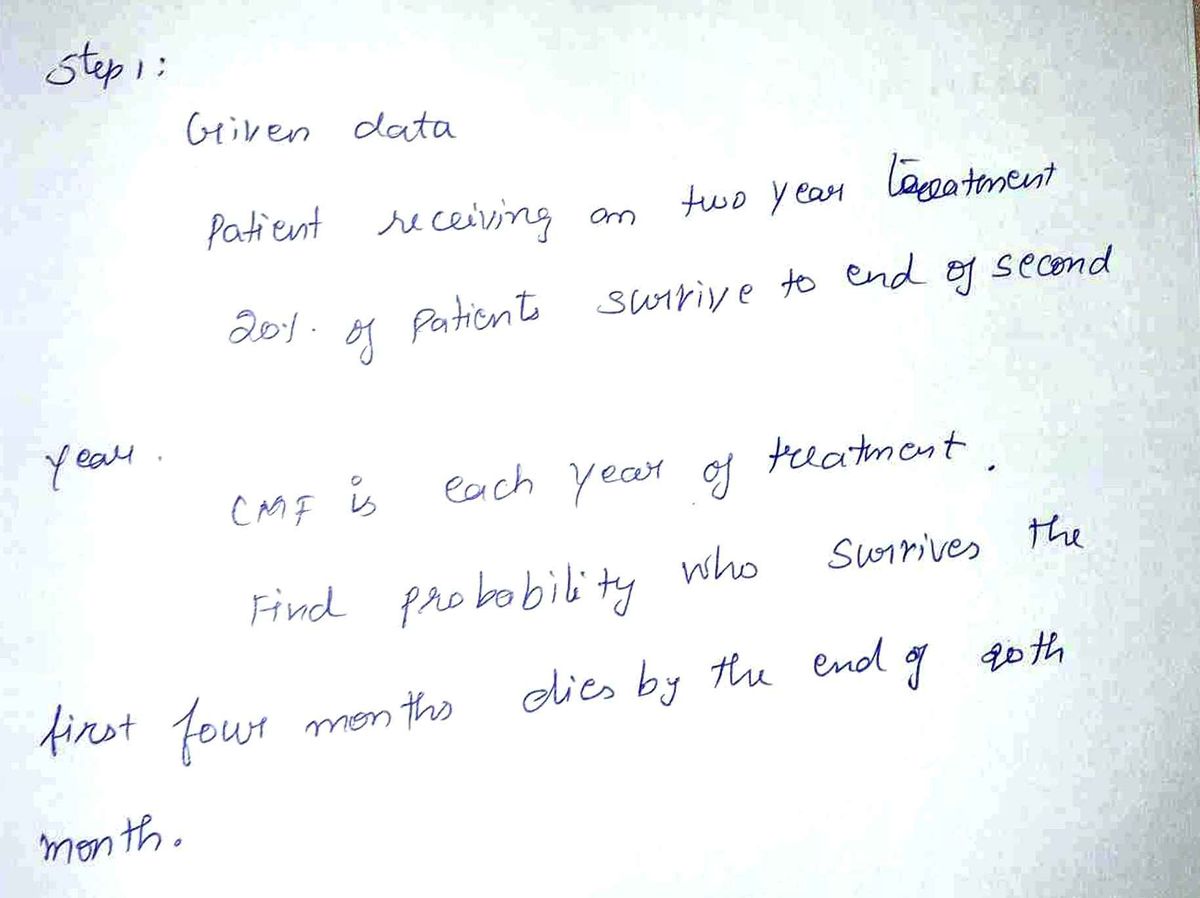 Step 1:
Given data
Patient receiving an two year treatment
20%. of patients survive to end of second
year.
CMF is each year of treatment.
Find probability who survives the
first four months dies by the end of 20th
month.